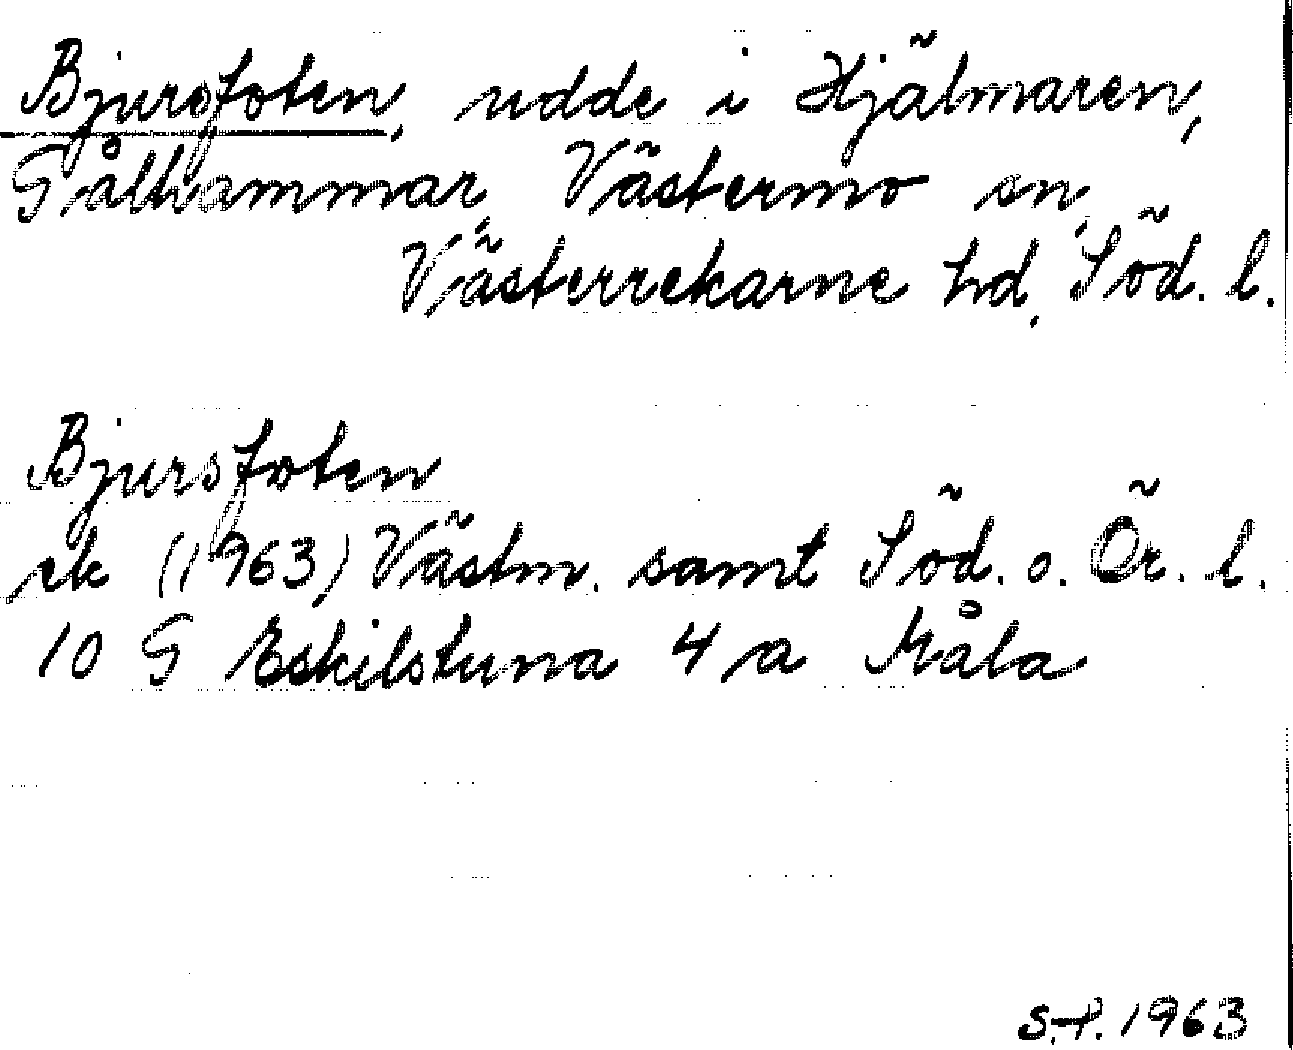 Bjursfoten, udde i Hjälmaren,
Gålhammar, Västermo sn,
Västerrekarne hd, Söd. l.
Bjursfoten
ek (1963) Västm. samt Söd. o. Ör. l.
10 G Eskilstuna 4 a Måla
S.P. 1963